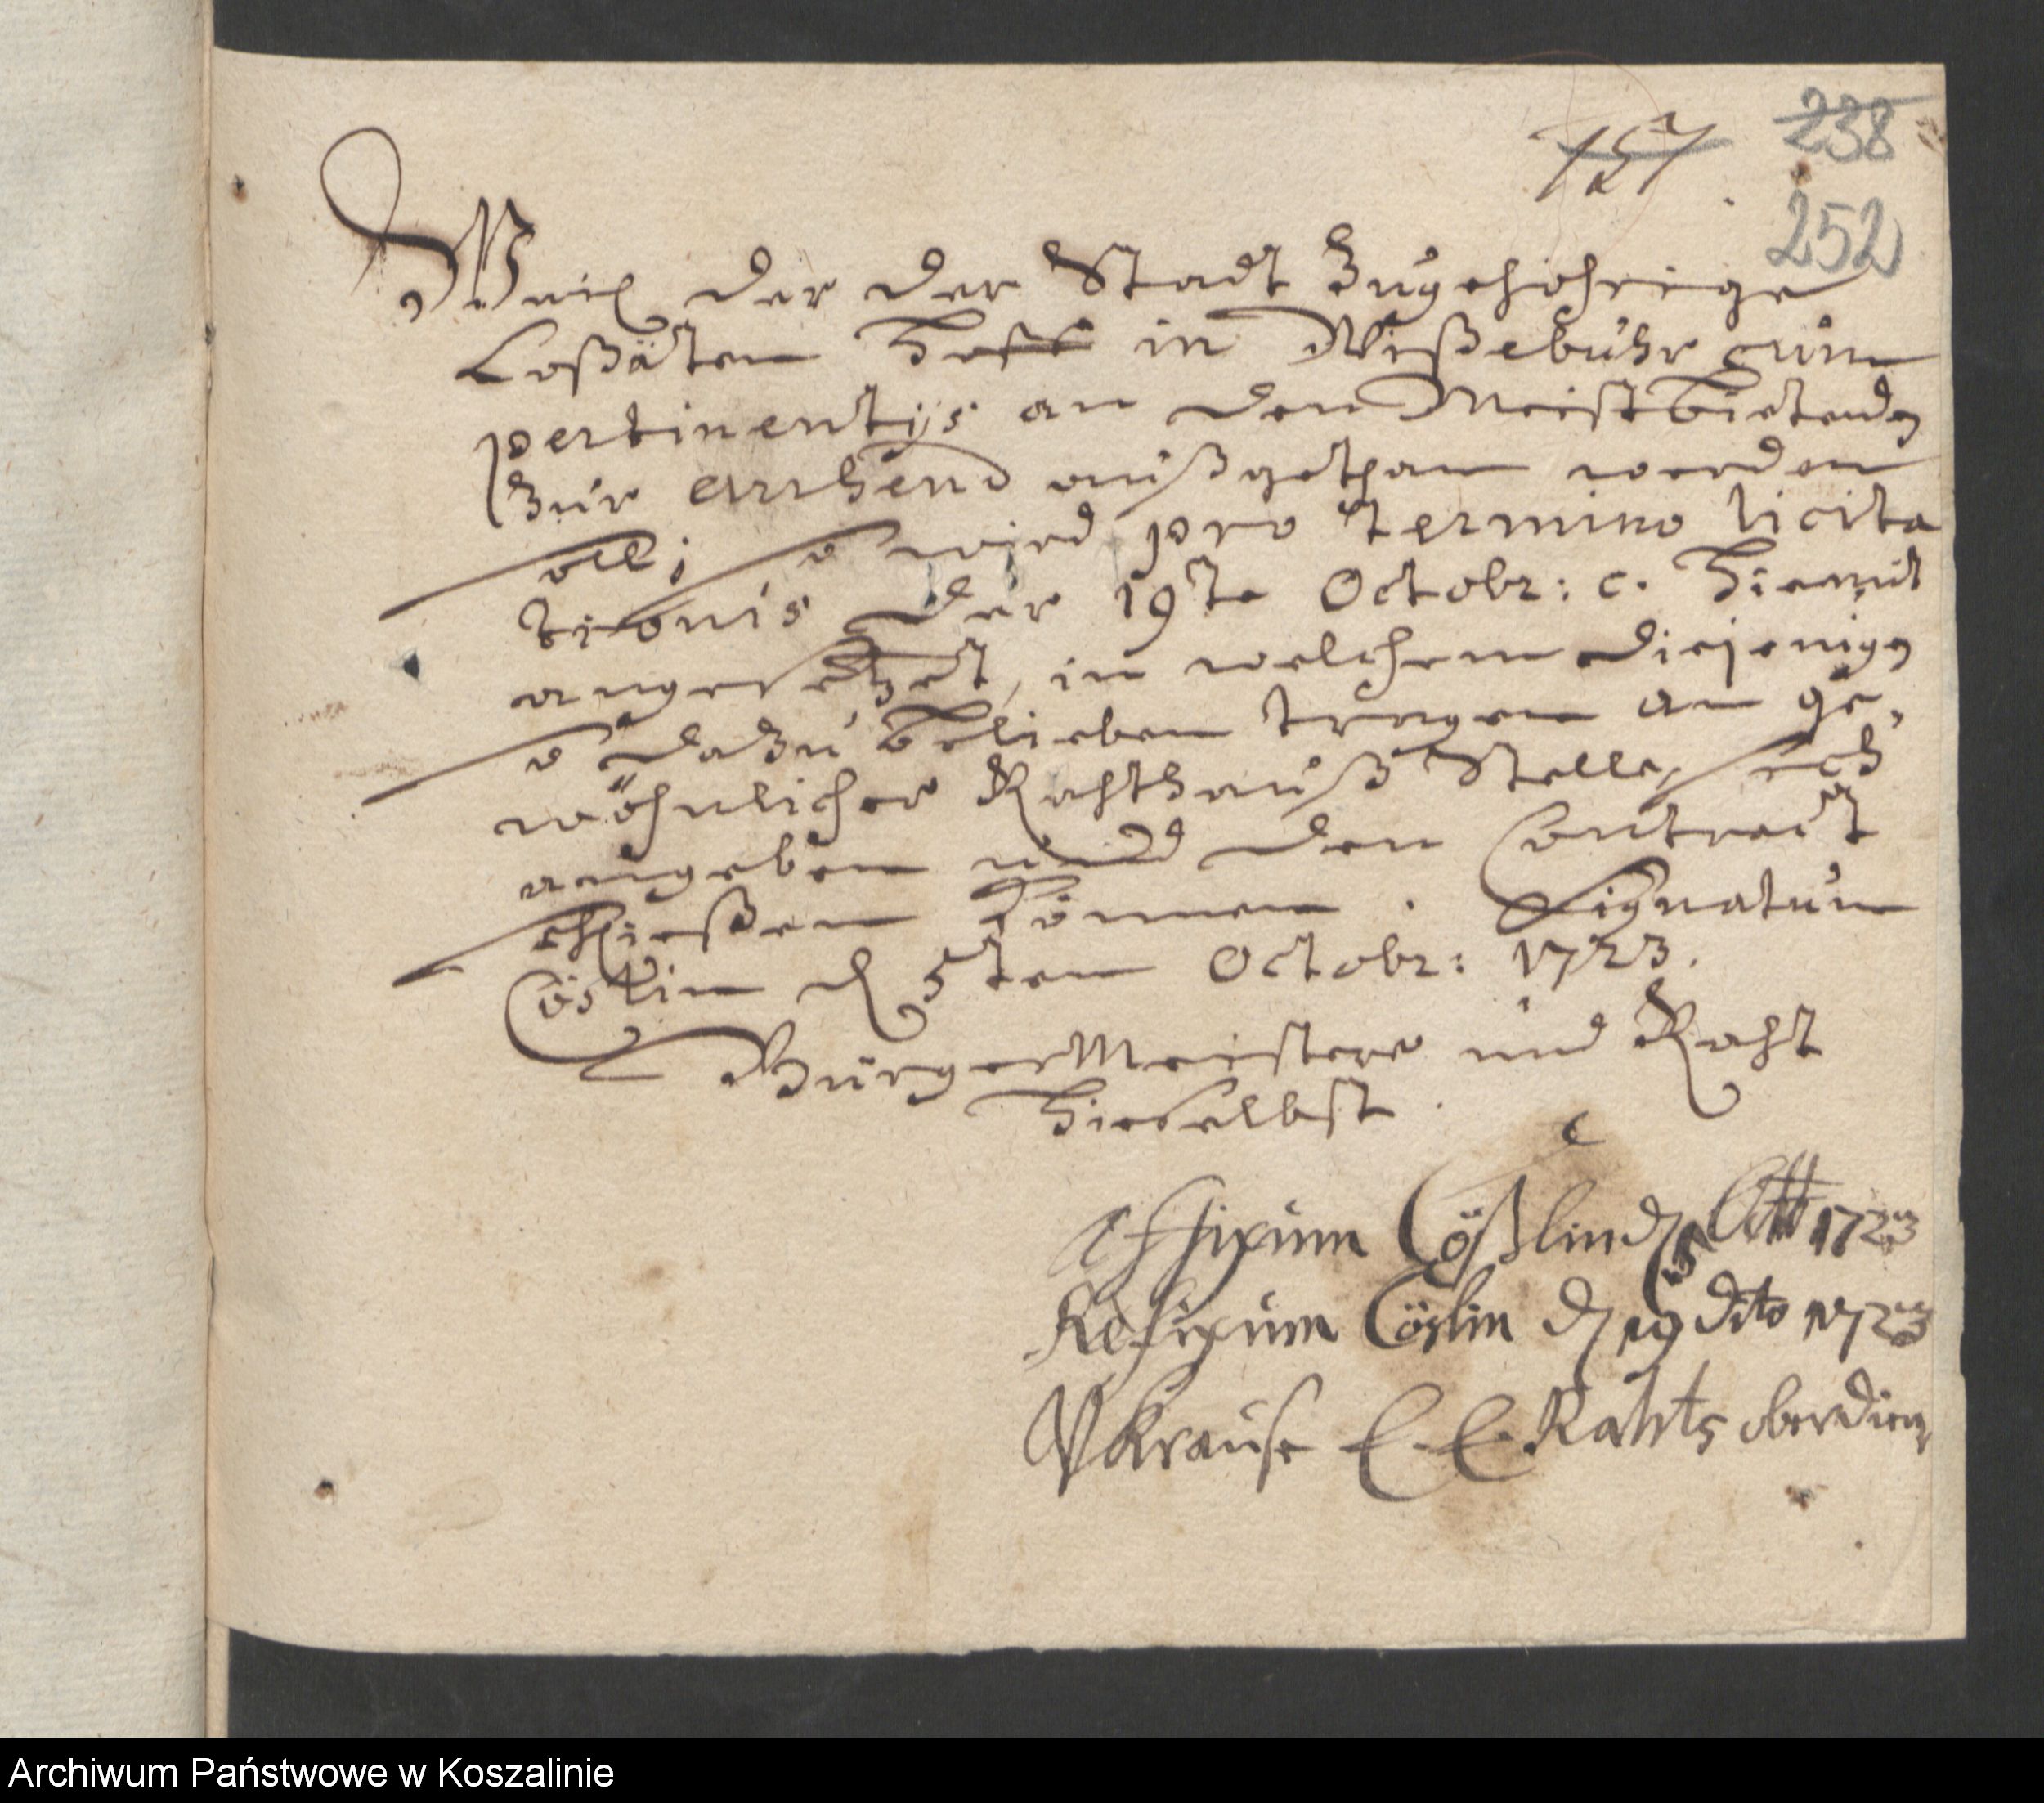 157.
238
252
Weil der der Stadt Zugehöhrige
Coßäten Hoff in Wißebuhr cum
pertinentijs an den Meistbietenden
Zur arrhend außgethan werden
soll; so wird pro termino licita
tionis der 19te Octobr: c. hiemit
angesetzet, in welchem diejenigen
so daZu belieben tragen an ge,
wöhnlicher Rahthauß Stelle, sich
angeben und den Contract
schließen können. Signatum
Cöslin d 5ten Octobr: 1723.
BürgerMeistere und Raht
hieselbst.
Affixum Cößlin d 5 Octb 1723
Refixum Cöslin d 19 dito 1723
Krause E. E. Rahts oberdien
Archiwum Państwowe w Koszalinie